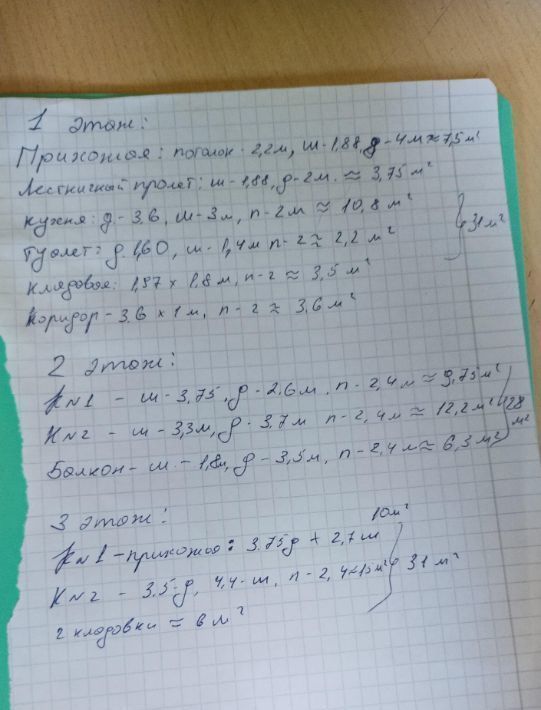 1 этаж:
Прихожая: потолок - 2,2м, ш-1,88, д-4м ≈ 7,5м²
Лестничный пролет: ш-1,88, д-2м. ≈ 3,75м²
кухня: д-3.6, ш-3м, п-2м ≈ 10,8 м²
Туалет: д.1,60, ш-1,4м п-2 ≈ 2,2 м²
31м²
кладовая: 1,97 x 1,8м, п-2 ≈ 3,5м²
Коридор - 3.6 x 1м, п-2 ≈ 3,6м²
2 этаж:
К№1 - ш-3,75, д-2,6м, п-2,4м ≈ 9,75м²
К№2 - ш-3,3м, д-3,7м п-2,4м ≈ 12,2м²
28 м²
Балкон - ш-1,8м, д-3,5м, п-2,4м ≈ 6,3м²
3 этаж:
К№1-прихожая: 3.75д x 2,7ш 10м²
К№2 - 3.5-д, 4,4-ш, п-2,4≈15м²
31 м²
2 кладовки ≈ 6м²